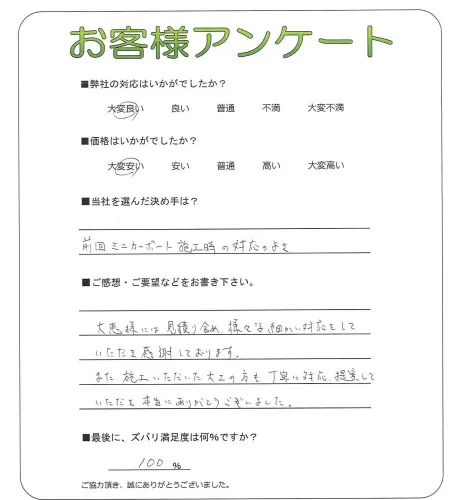 お客様アンケート
■弊社の対応はいかがでしたか?
大変良い 良い 普通 不満 大変不満
■価格はいかがでしたか?
大変安い 安い 普通 高い 大変高い
■当社を選んだ決め手は?
前回ミニカーポート施工時の対応のよさ
■ご感想・ご要望などをお書き下さい。
大恵様には見積り含め、様々な細かい対応をして
いただき感謝しております。
また施工いただいた大工の方も丁寧に対応、提案して
いただき本当にありがとうございました。
■最後に、ズバリ満足度は何%ですか?
100 %
ご協力頂き、誠にありがとうございました。